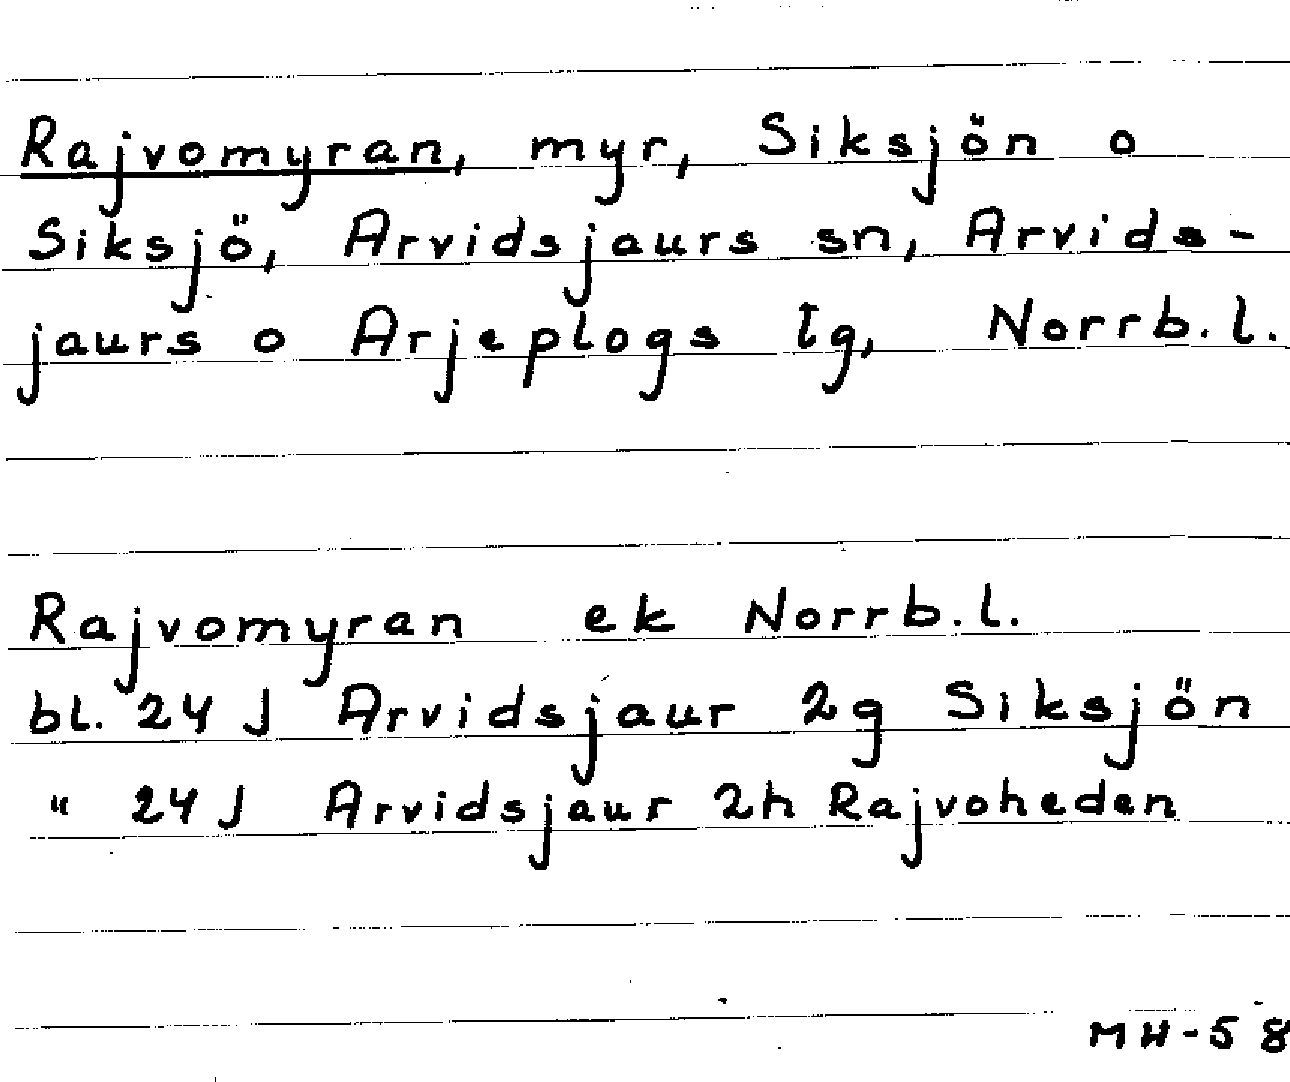 Rajvomyran, myr, Siksjön o
Siksjö, Arvidsjaurs sn, Arvids-
jaurs o Arjeplogs lg, Norrb.l.
Rajvomyran ek Norrb.l.
bl. 24 J Arvidsjaur 2g Siksjön
" 24 J Arvidsjaur 2h Rajvoheden
MH-58